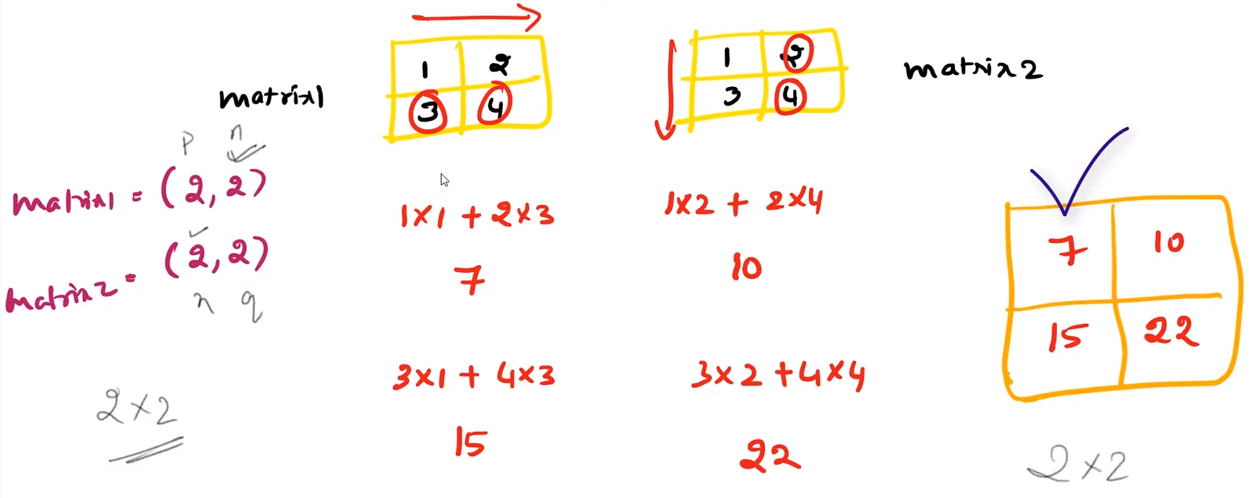 matrix1
1 2
3 4
1 2
3 4
matrix2
p n
matrix1 = (2, 2)
matrix2 = (2, 2)
n q
2×2
1×1 + 2×3
7
1×2 + 2×4
10
3×1 + 4×3
15
3×2 + 4×4
22
7 10
15 22
2×2